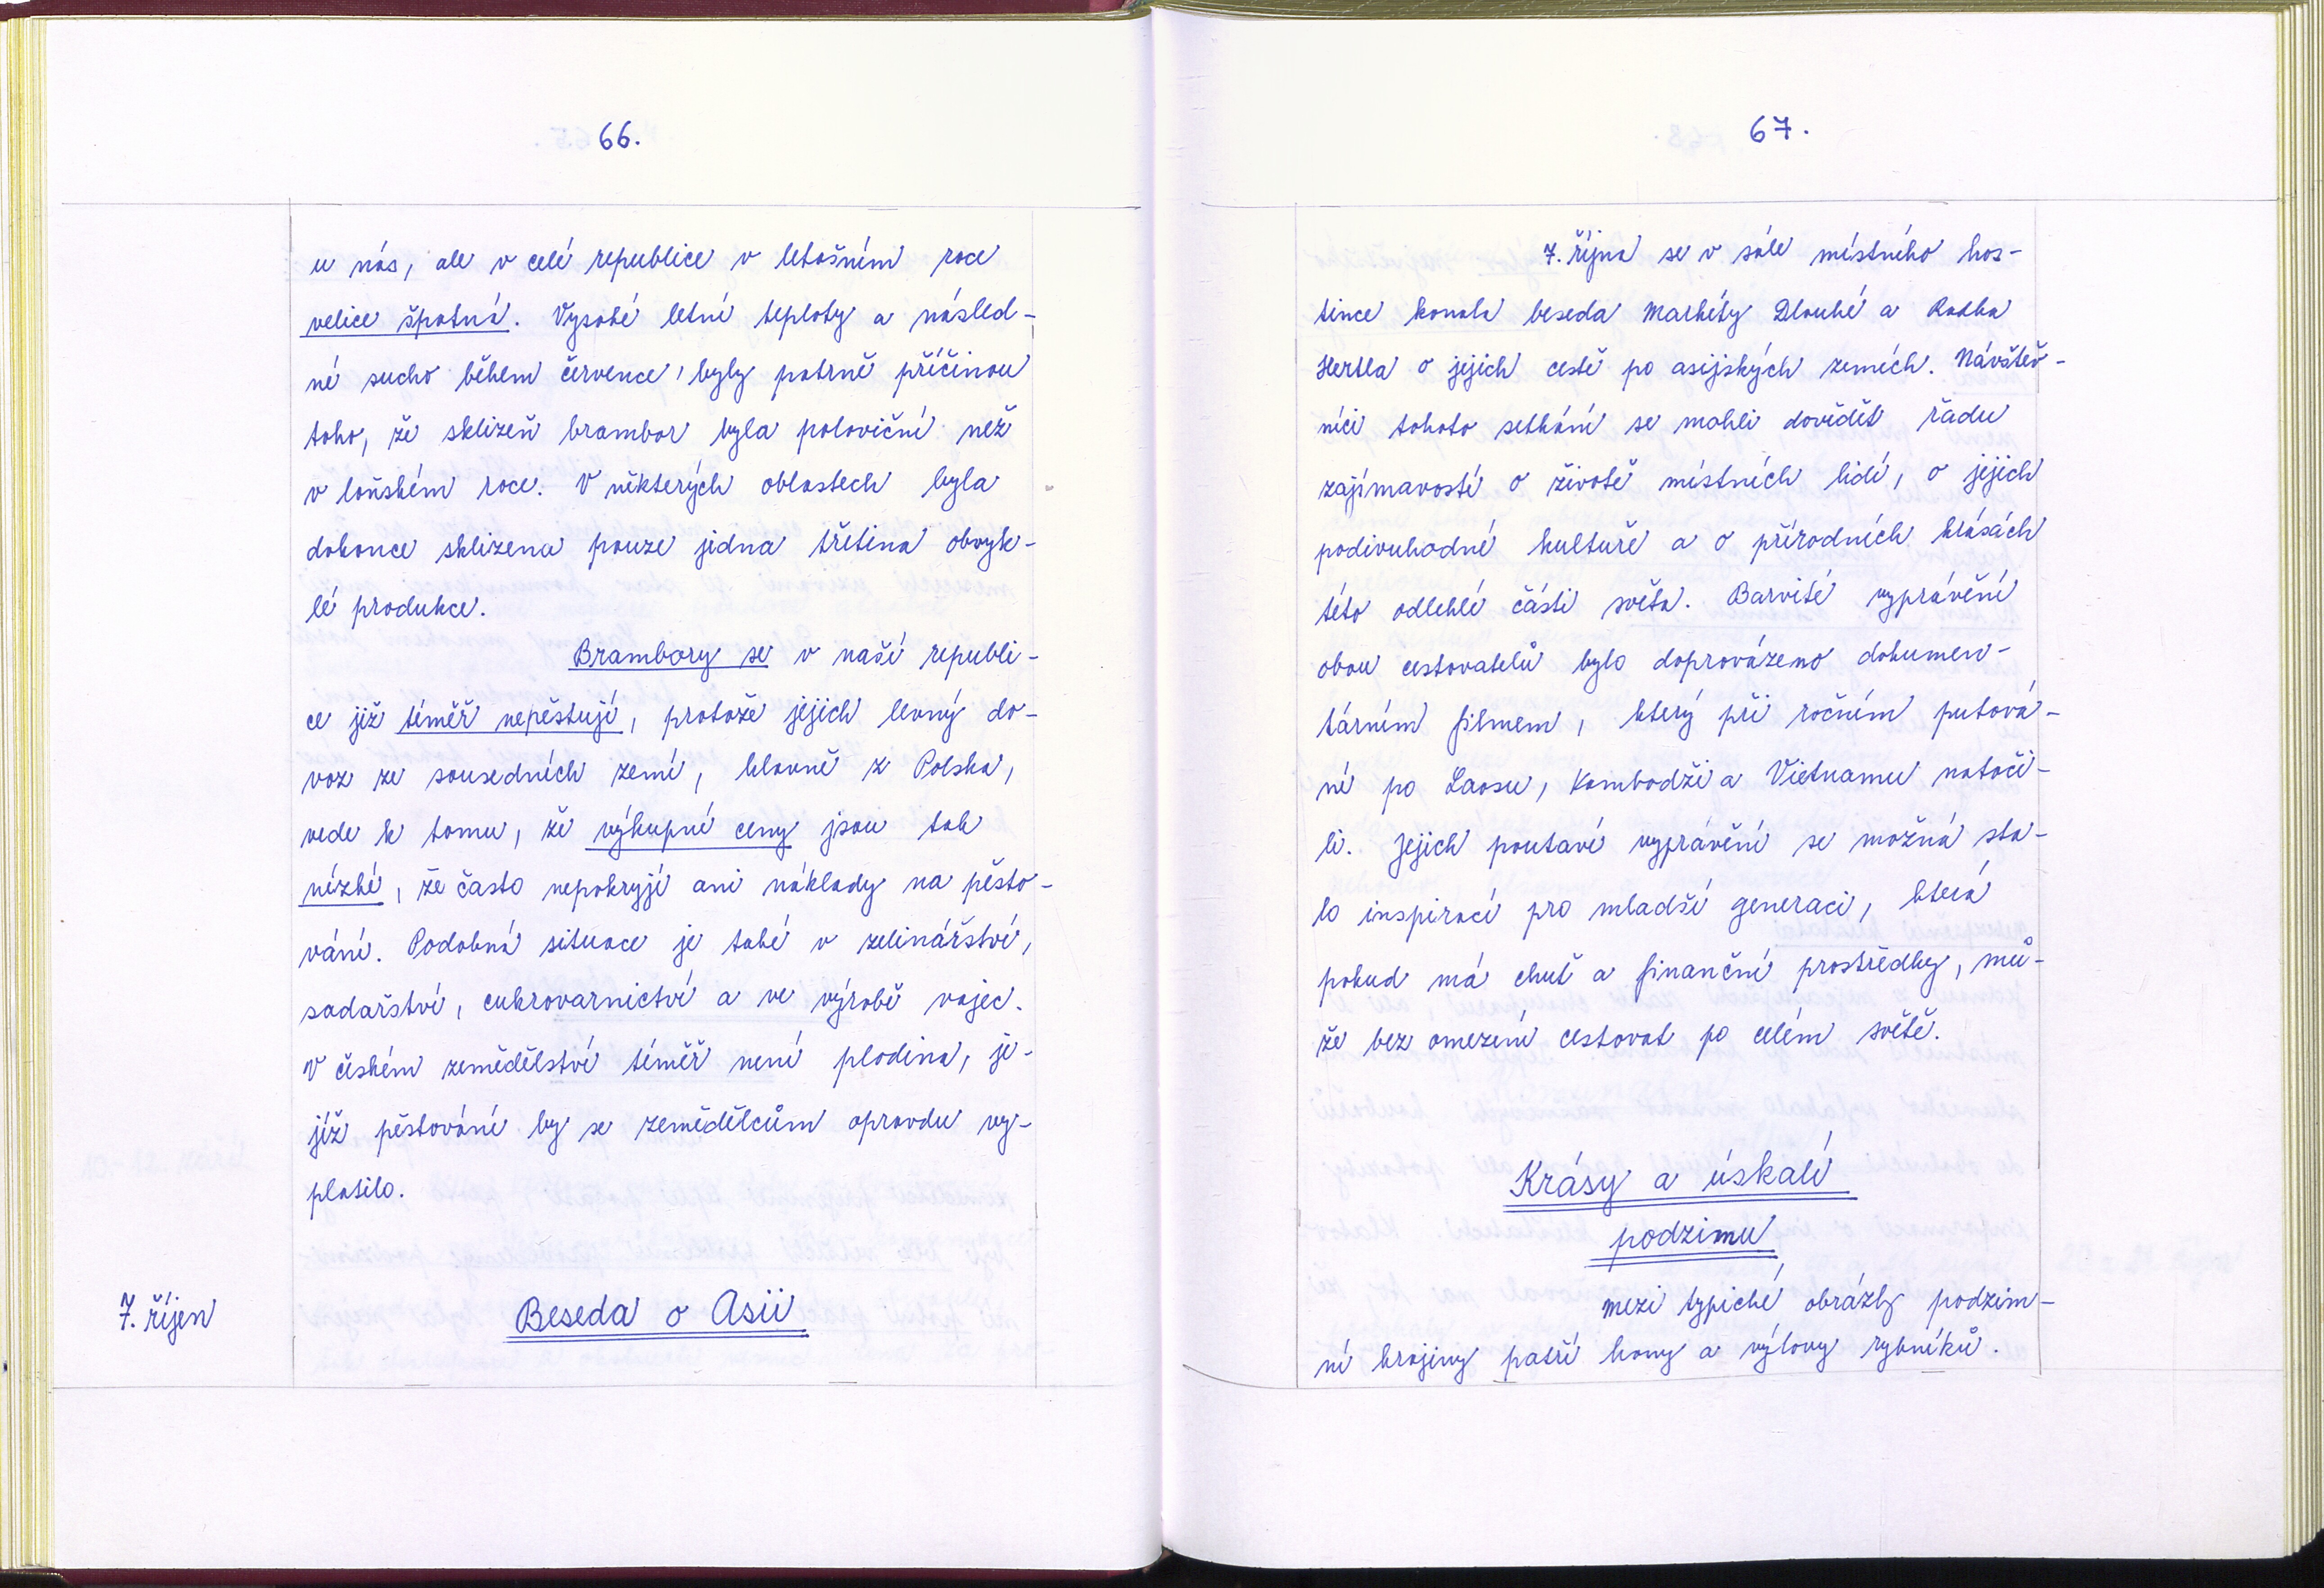 66.
u nás, ale v celé republice v letošním roce
velice špatná. Vysoké letní teploty a násled-
né sucho během července, byly patrně příčinou
toho, že sklizeň brambor byla poloviční než
v loňském roce. V některých oblastech byla
dokonce sklizena pouze jedna třetina obvyk-
lé produkce.
Brambory se v naší republi-
ce již téměř nepěstují, protože jejich levný do-
voz ze sousedních zemí, hlavně z Polska,
vede k tomu, že výkupní ceny jsou tak
nízké, že často nepokryjí ani náklady na pěsto-
vání. Podobná situace je také v zelinářství,
sadařství, cukrovarnictví a ve výrobě vajec.
V českém zemědělství téměř není plodina, je-
jíž pěstování by se zemědělcům opravdu vy-
platilo.
7. říjen
Beseda o Asii
67.
7. října se v sále místního hos-
tince konala beseda Markéty Dlouhé a Radka
Hertla o jejich cestě po asijských zemích. Návštěv-
níci tohoto setkání se mohli dovědět řadu
zajímavostí o životě místních lidí, o jejich
podivuhodné kultuře a o přírodních krásách
této odlehlé části světa. Barvité vyprávění
obou cestovatelů bylo doprovázeno dokumen-
tárním filmem, který při ročním putová-
ní po Laosu, Kambodži a Vietnamu natoči-
li. Jejich poutavé vyprávění se možná sta-
lo inspirací pro mladší generaci, která
pokud má chuť a finanční prostředky, mů-
že bez omezení cestovat po celém světě.
Krásy a úskalí
podzimu
Mezi typické obrázky podzim-
ní krajiny patří hony a výlovy rybníků.